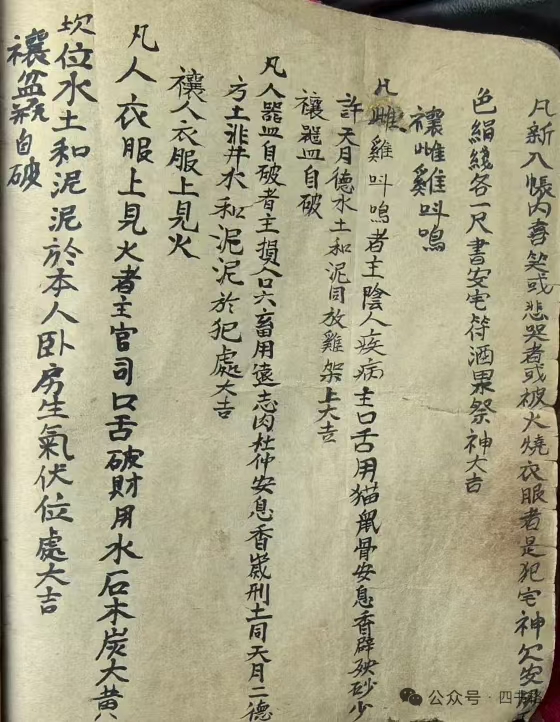 凡新入帳內喜笑或悲哭者或被火燒衣服者是犯宅神欠安用
色絹綫各一尺書安宅符酒果祭神大吉
禳雌雞叫鳴
凡雌雞叫鳴者主陰人疾病主口舌用猫鼠骨安息香辟砂少
許天月德水土和泥同放雞架上大吉
禳器皿自破
凡人器皿自破者主損人口六畜用遠志肉杜仲安息香歲刑土同天月二德
方土非井水和泥泥於犯處大吉
禳人衣服上見火
凡人衣服上見火者主官司口舌破財用水石木炭大黄
坎位水土和泥泥於本人卧房生氣伏位處大吉
禳盆瓶自破
公众号·四书